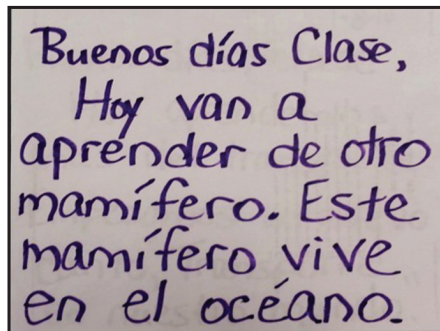 Buenos días Clase,
Hoy van a
aprender de otro
mamífero. Este
mamífero vive
en el océano.